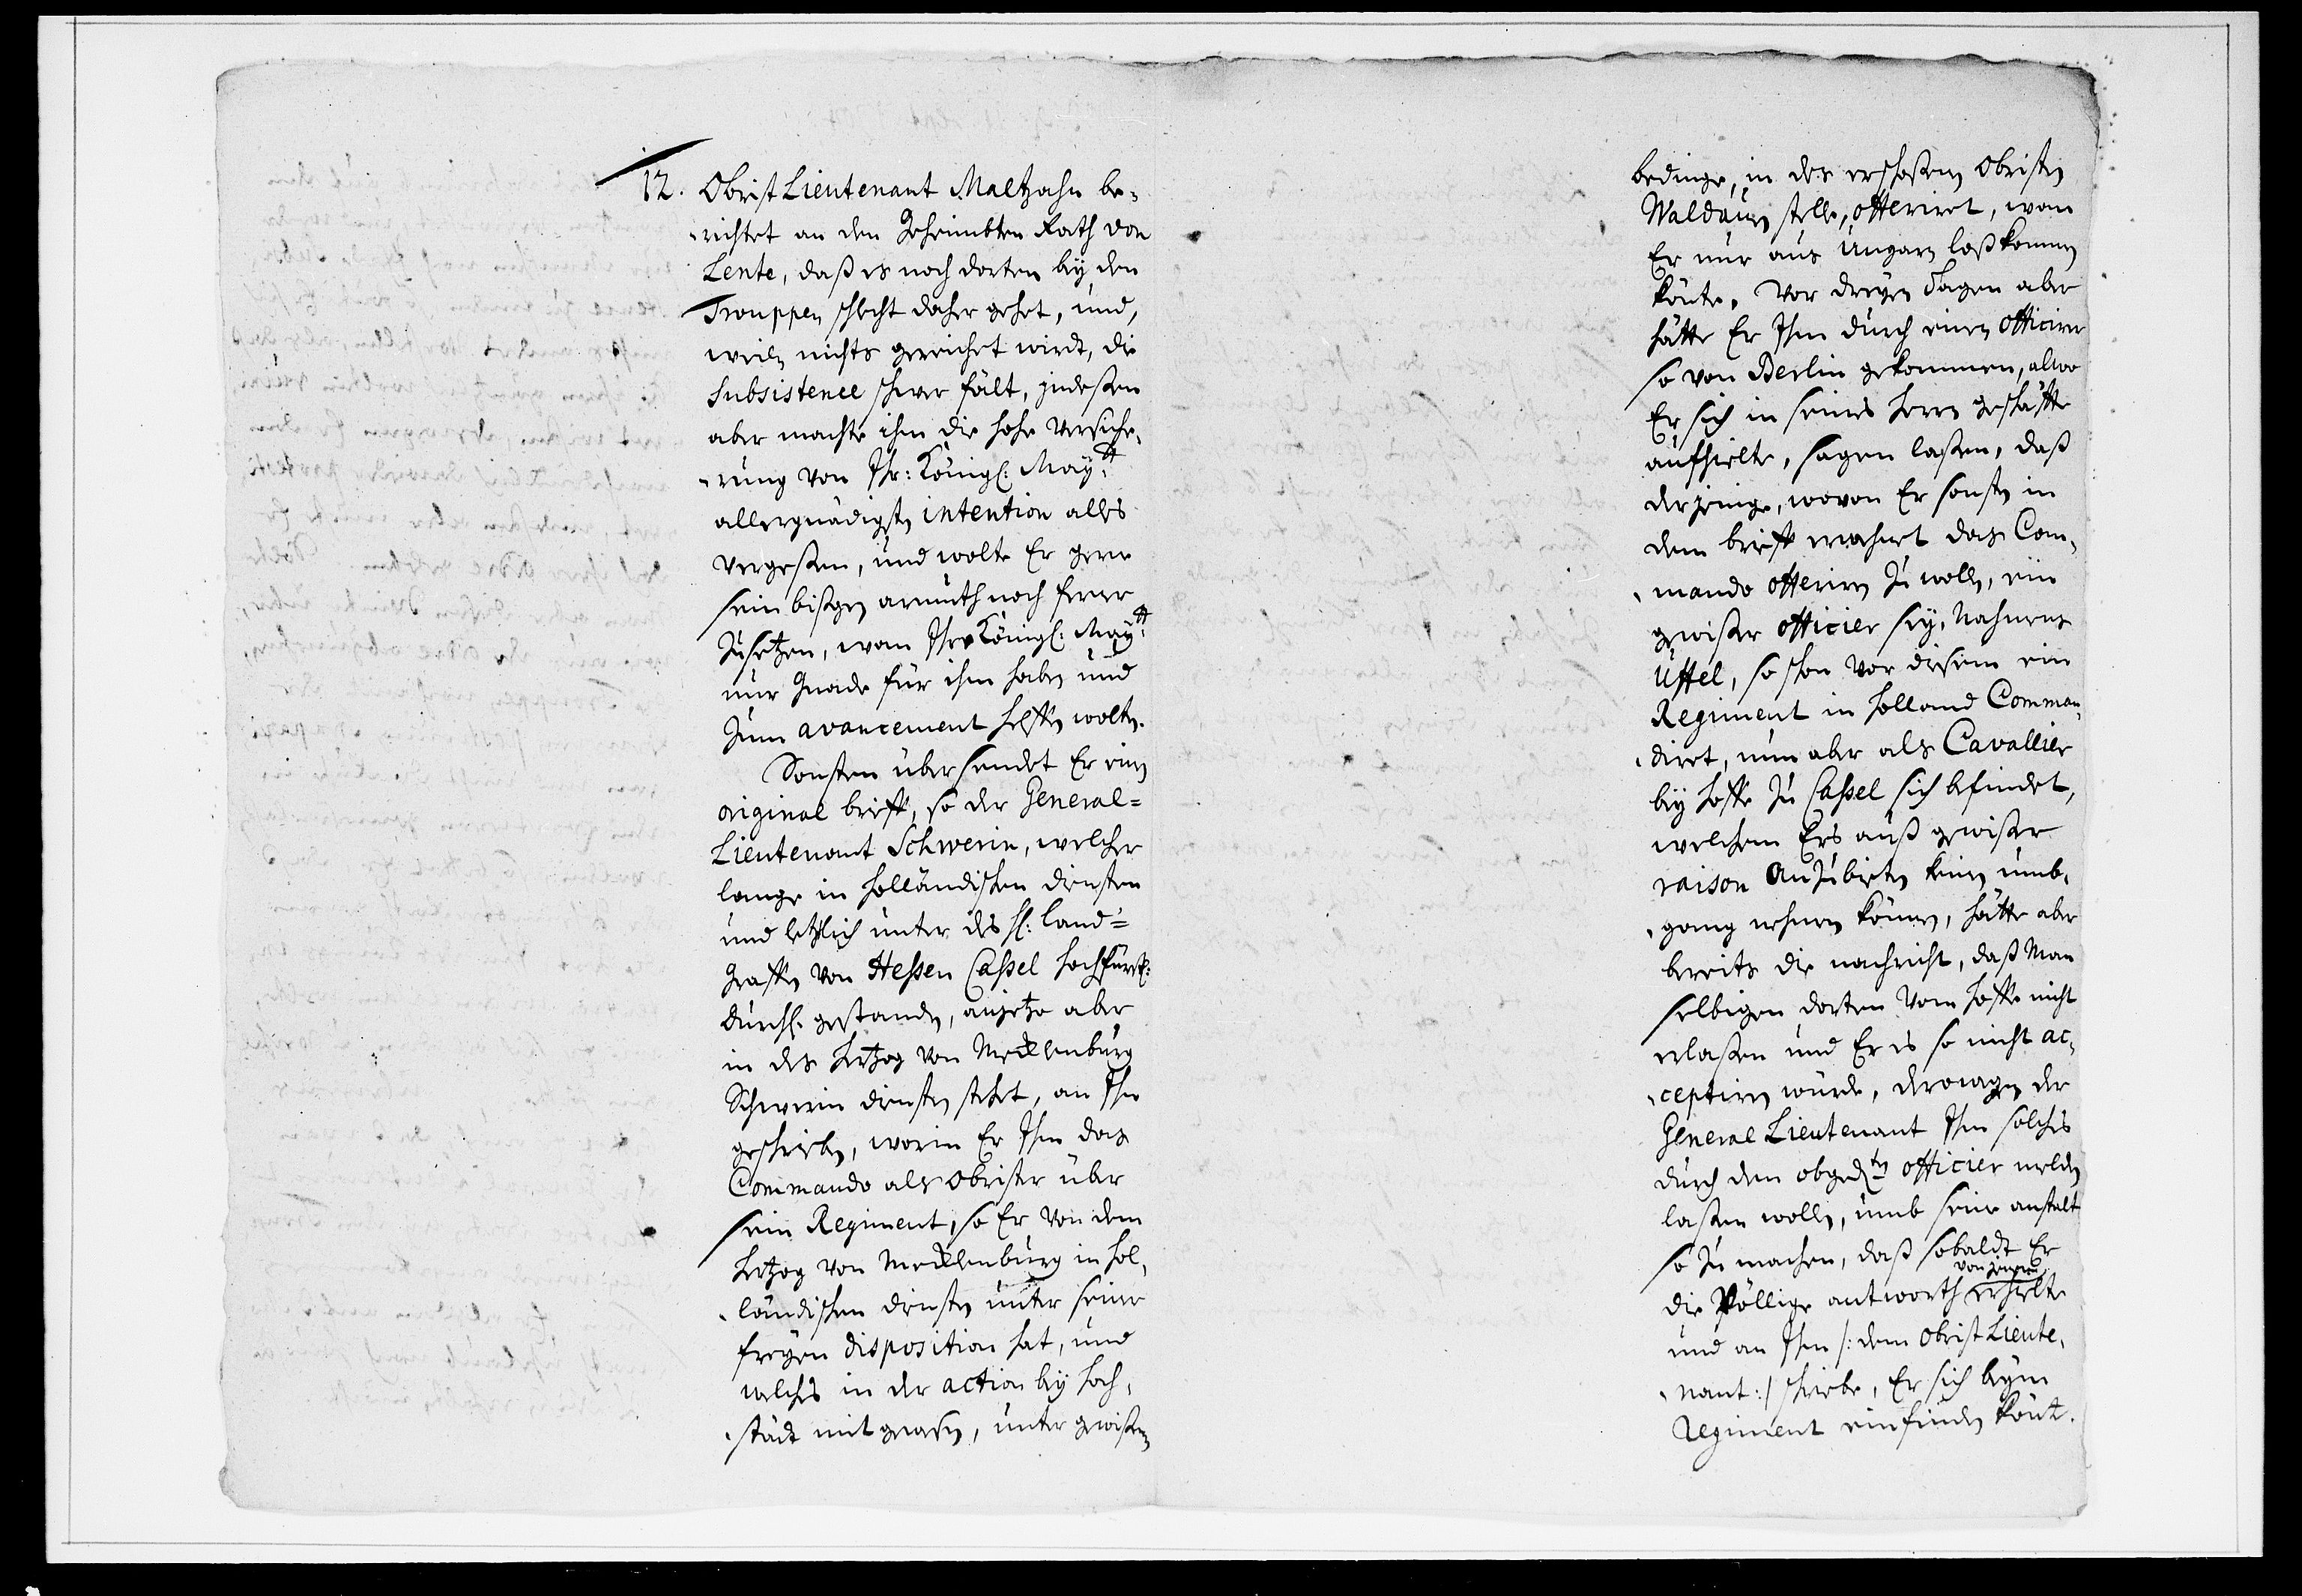 12. Obrist Lieutenant Maltzahn be-
richtet an den Geheimbten Rath von
Lente, daß es noch dorten bey den
Trouppen schlecht daher gehet, und,
weiln nichts gereichet wirdt, die
Subsistence schwer fält, indeßen
aber machte ihm die hohe versiche-
rung von Ihr: Königl: Maytt
allergnädigsten intention alles
vergeßen, und wolte Er gern
sein bißgen armuth noch ferner
Zusetzen, wan Ihro Königl: Maytt:
nur Gnade für ihm haben und
Zum avancement helffen wolten.
Sonsten übersendet Er einen
original brieff, so der General-
Lieutenant Schwerin, welcher
lange in holländischen diensten
und letzlich unter des H: Land-
Graffen von Hessen Cassel hochfürstl:
durchl. gestanden, anjetzo aber
in des Hertzog von Mecklenburg
Schwerin diensten stehet, an Ihn
geschrieben, worin Er Ihm das
Commando als Obrister über
sein Regiment, so Er von dem
Hertzog von Mecklenburg in hol-
ländischen diensten unter seiner
freyen disposition hat, und
welches in der action bey Hoch-
städt mit gewesen, unter gewißen
bedinge, in des erschoßenen Obristen
Waldauen stelle, offeriret, wan
Er nur aus Ungarn loßkommen
könte. Vor dreyen Tagen aber
hätte Er Ihm durch einen Officirer
so von Berlin gekommen, alwo
Er sich in seines Herrn geschäffte
aufhielte, sagen laßen, daß
derjenige, wovon Er sonsten in
dem brieff erwehnet das Com-
mando offeriren zu wollen, ein
gewißer officier sey, Nahmens
Uffel, so schon vor diesem ein
Regiment in Holland Comman-
diret, nun aber als Cavallier
bey Hoffe zu Cassel sich befindet,
welchem Ers auß gewißer
raison anzubieten keinen umb-
gang nehmen können, hätte aber
bereits die nachricht, daß Man
selbigen dorten vom Hoffe nicht
erlaßen und Er es so nicht ac-
ceptiren würde, derowegen der
General Lieutenant Ihm solches
durch den obgedten officier melden
laßen wollen, umb seine anstalt
so zu machen, daß sobaldt Er
von jenem
die Völlige antworth erhielte
und an Ihm /: dem Obrist Lieute-
nant :/ schriebe, Er sich beym
Regiment einfinden könte.